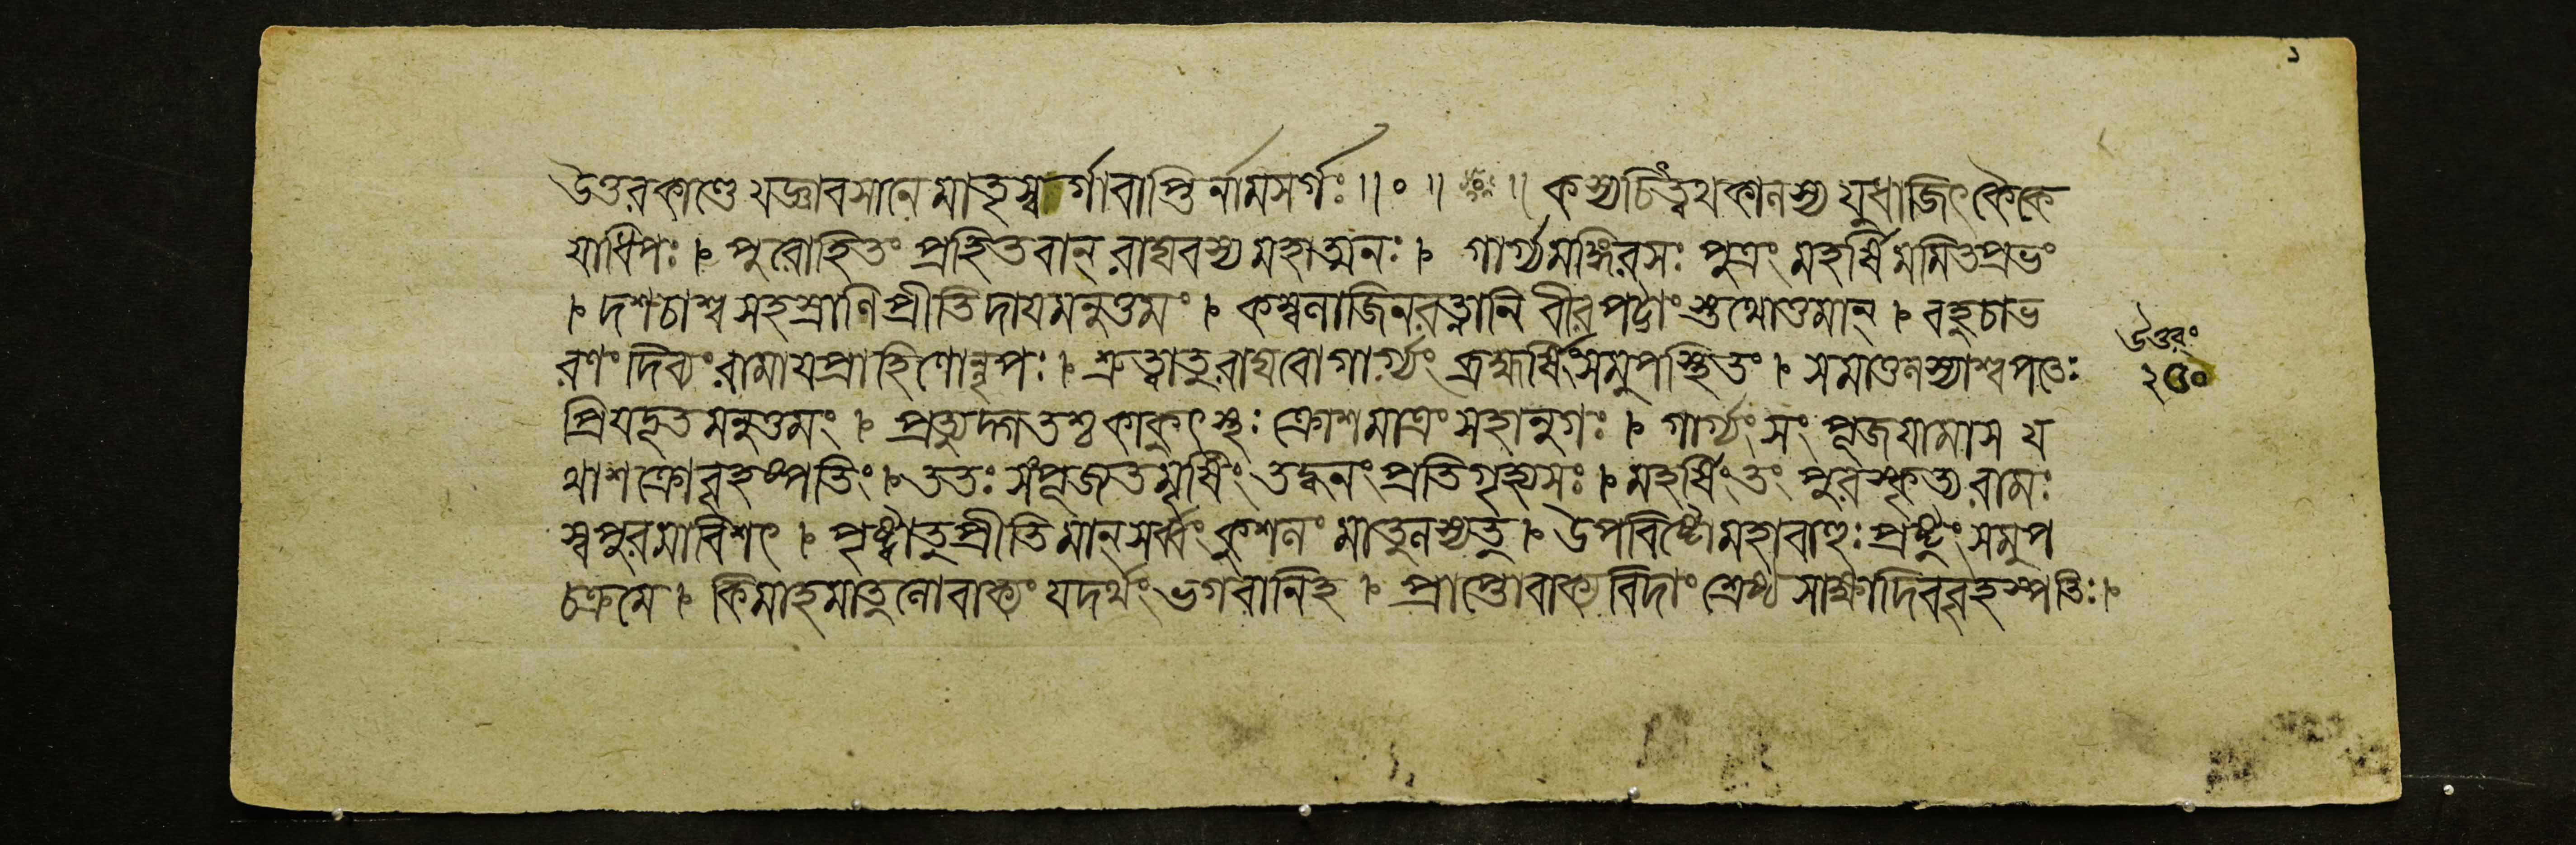 ১
উত্তরকাণ্ডে যজ্ঞাবসানে মাতৃস্বর্গাবাপ্তির্নামসর্গঃ ॥ ০ ॥ ॥ কস্যচিত্ত্বথকালস্য যুধাজিৎ কৈকে
যাধিপঃ । পুরোহিতং প্রহিতবান্ রাঘবস্য মহাত্মনঃ । গার্গ্যমঙ্গিরসঃ পুত্রং মহর্ষিমমিতপ্রভং
। দশচাশ্বসহস্রাণি প্রীতিদাযমনুত্তমং । কম্বলাজিনরত্নানি চীরপট্টাংস্তথোত্তমান্ । বহুচাভ
রণং দিব্যং রামাযপ্রাহিণোন্নৃপঃ । শ্রুত্বাতু রাঘবোগার্গ্যং ব্রহ্মর্ষিংসমুপস্থিতং । সমাতুলস্যাশ্বপতেঃ
উত্তরং
২৫০
প্রিযদূতমনুত্তমং । প্রত্যুদ্গতশ্চ কাকুৎস্থঃ ক্রোশমাত্রং সহানুগঃ । গার্গ্যং সংপূজযামাস য
থাশক্রোবৃহস্পতিং । ততঃ সংপূজ্যতমৃষিং তদ্ধনং প্রতিগৃহ্যসঃ । মহর্ষিং তং পুরস্কৃত্য রামঃ
স্বপুরমাবিশৎ । পৃষ্ট্বাতু প্রীতিমান্ সর্ব্বং কুশলং মাতুলস্যতু । উপবিষ্টোমহাবাহুঃ প্রষ্টুং সমুপ
চক্রমে । কিমাহমাতুলোবাক্যং যদর্থং ভগবানিহ । প্রাপ্তোবাক্যবিদাং শ্রেষ্ঠ সাক্ষাদিববৃহস্পতিঃ ।